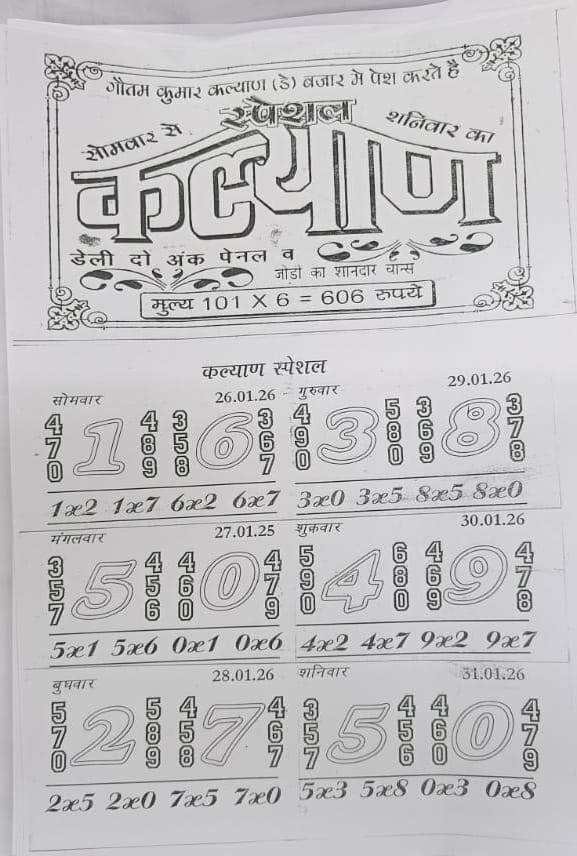 गौतम कुमार कल्याण (डे) बजार मे पेश करते है
स्पेशल
सोमवार से शनिवार का
कल्याण
डेली दो अंक पेनल व
जोडी का शानदार चान्स
मुल्य 101 X 6 = 606 रुपये
कल्याण स्पेशल
सोमवार 26.01.26
470 1 489 358 6 367
1x2 1x7 6x2 6x7
गुरुवार 29.01.26
490 3 580 369 8 378
3x0 3x5 8x5 8x0
मंगलवार 27.01.25
357 5 456 460 0 479
5x1 5x6 0x1 0x6
शुकवार 30.01.26
590 4 680 469 9 478
4x2 4x7 9x2 9x7
बुघवार 28.01.26
570 2 589 458 7 467
2x5 2x0 7x5 7x0
शनिवार 31.01.26
357 5 456 460 0 479
5x3 5x8 0x3 0x8